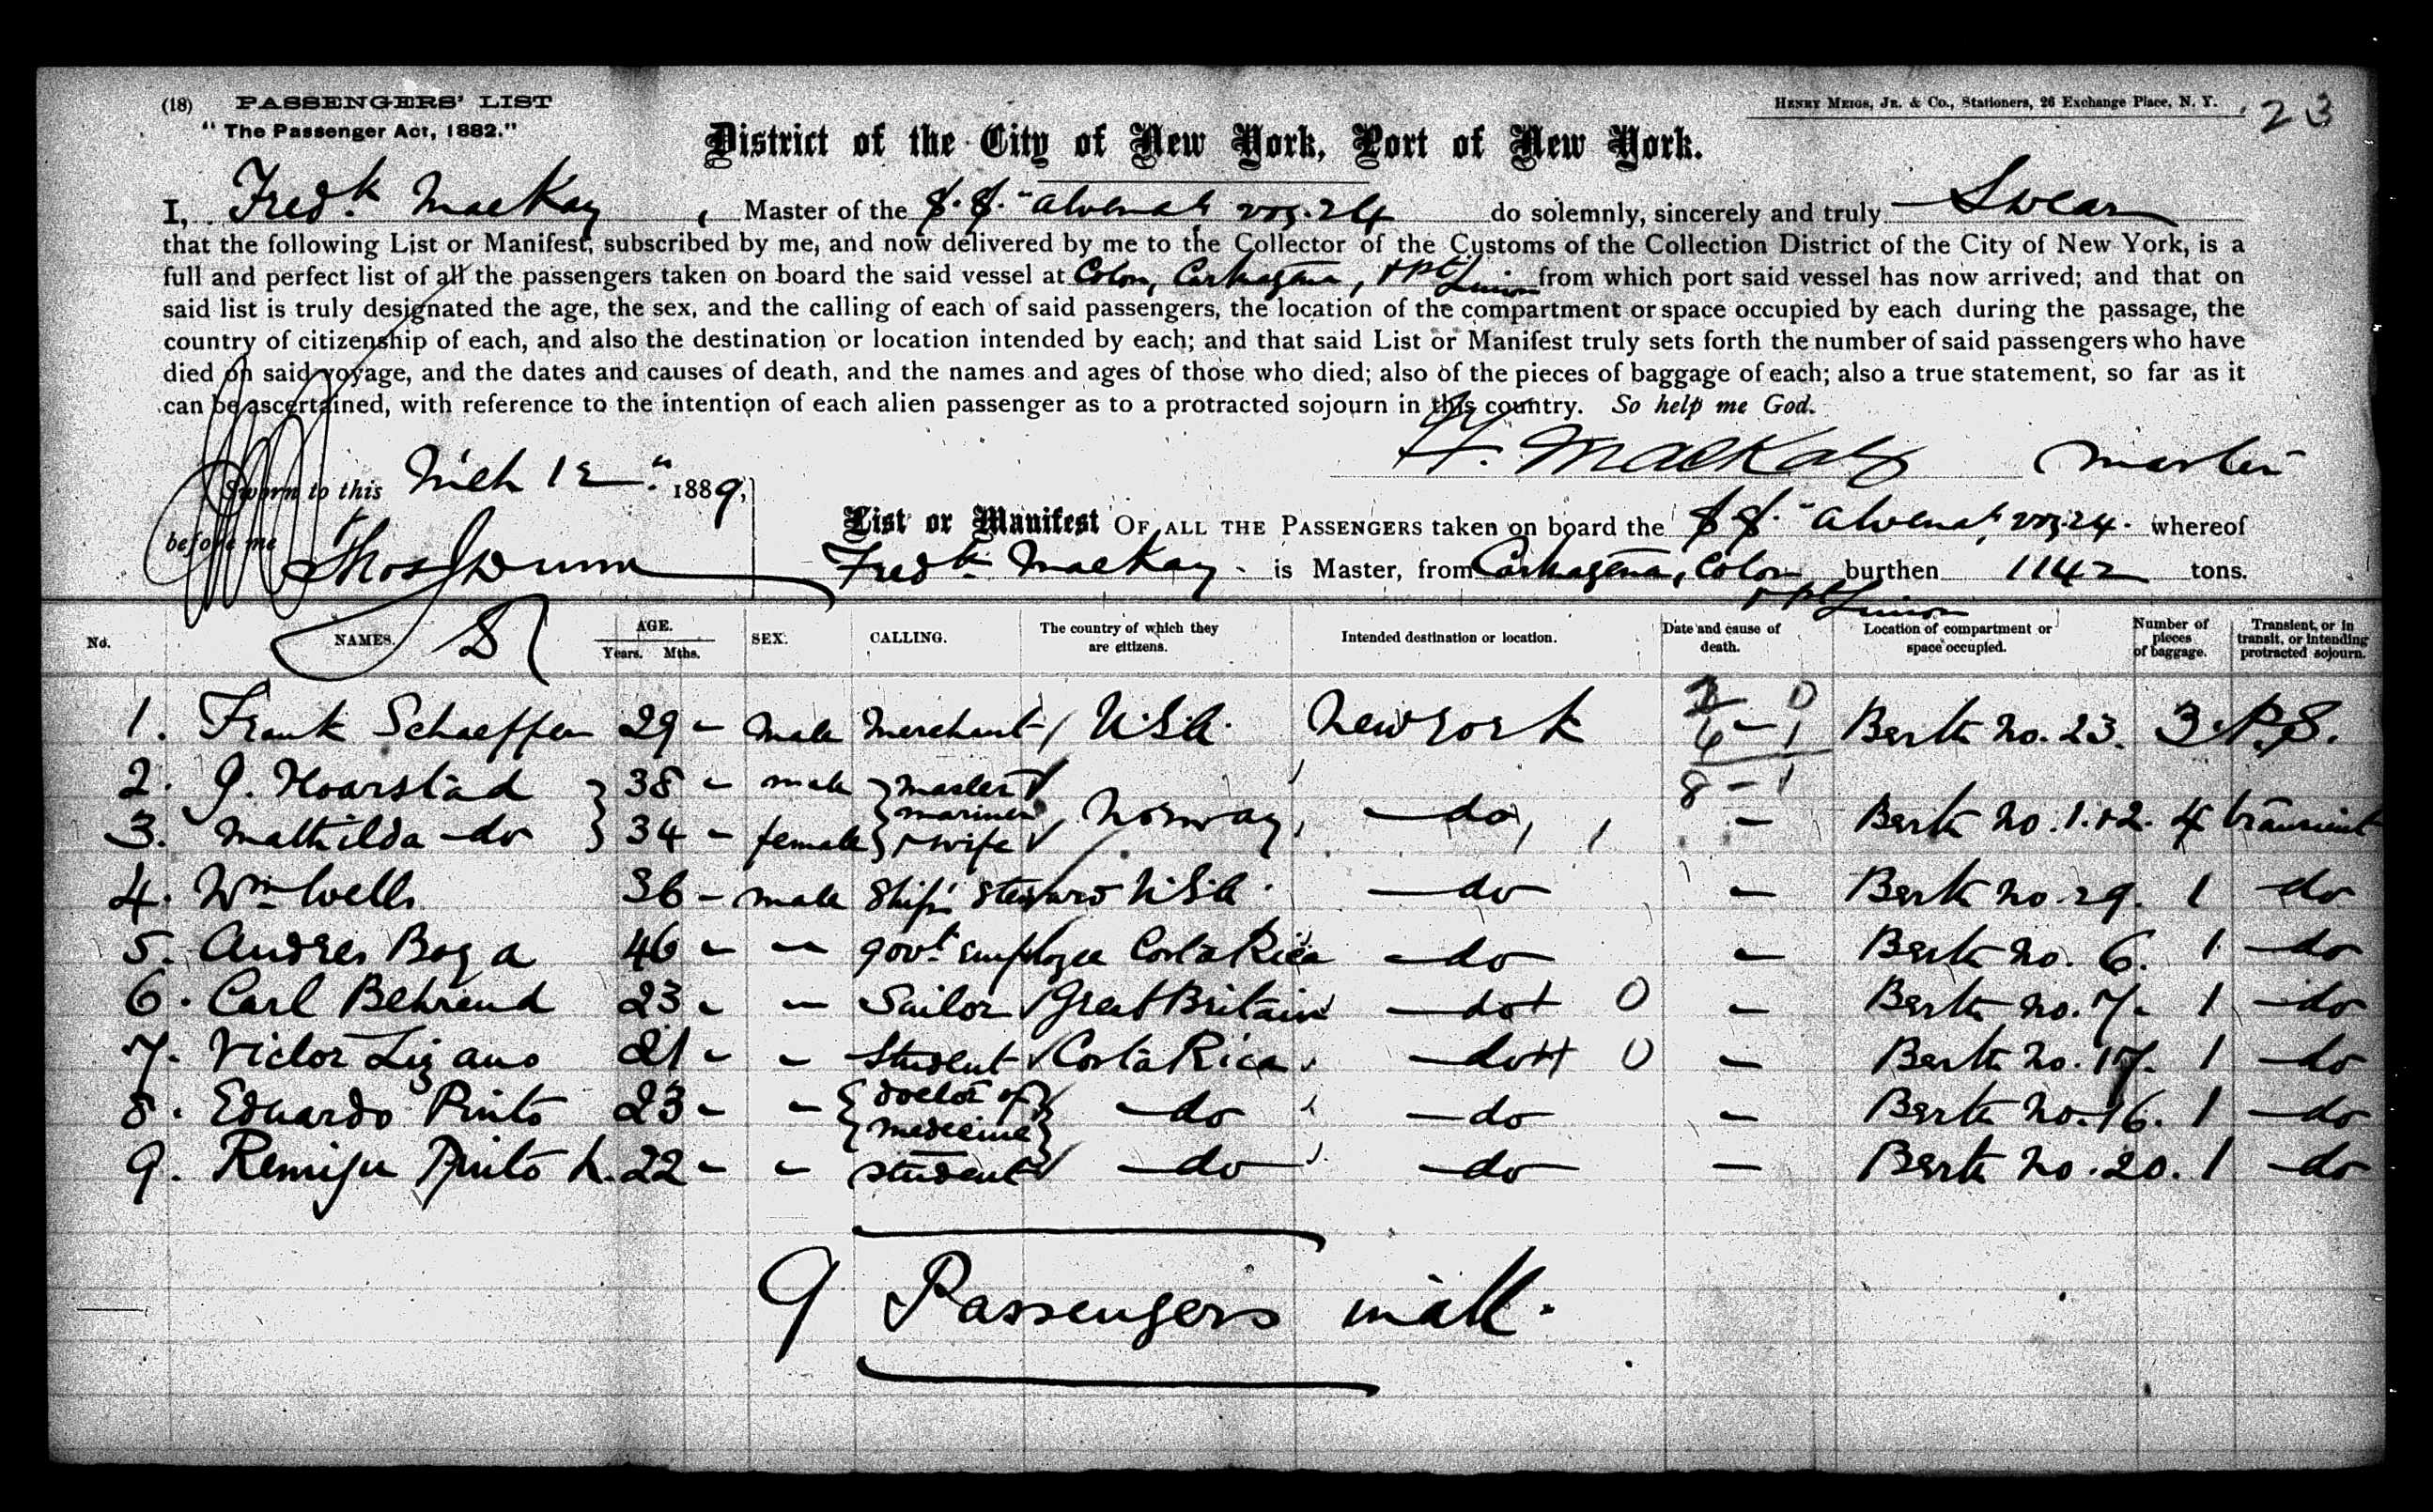 (18) PASSENGERS' LIST
"The Passenger Act, 1882."
HENRY MEIGS, JR. & CO., Stationers, 26 Exchange Place, N. Y.
23
District of the City of New York, Port of New York.
I, Fredk MacKay, Master of the S.S. "Alvena" voy. 24 do solemnly, sincerely and truly Swear
that the following List or Manifest, subscribed by me, and now delivered by me to the Collector of the Customs of the Collection District of the City of New York, is a
full and perfect list of all the passengers taken on board the said vessel at Colon, Carthagena, & Pt Limon from which port said vessel has now arrived; and that on
said list is truly designated the age, the sex, and the calling of each of said passengers, the location of the compartment or space occupied by each during the passage, the
country of citizenship of each, and also the destination or location intended by each; and that said List or Manifest truly sets forth the number of said passengers who have
died on said voyage, and the dates and causes of death, and the names and ages of those who died; also of the pieces of baggage of each; also a true statement, so far as it
can be ascertained, with reference to the intention of each alien passenger as to a protracted sojourn in this country. So help me God.
F. MacKay Master
Sworn to this Mch 12th 1889,
before me Thos J Dunn
List or Manifest OF ALL THE PASSENGERS taken on board the S.S. "Alvena" voy. 24. whereof
Fredk MacKay is Master, from Carthagena, Colon & Pt Limon burthen 1142 tons.
No. NAMES. AGE. Years. Mths. SEX. CALLING. The country of which they are citizens. Intended destination or location. Date and cause of death. Location of compartment or space occupied. Number of pieces of baggage. Transient, or in transit, or intending protracted sojourn.
1. Frank Schaeffer 29 - male Merchant U.S.A. New York Berth No. 23. 3 P.S.
4 - 1
8 - 1
2. J. Hoarstad 38 - male master mariner
3. Mathilda do 34 - female & wife Norway, do - Berth No. 1. & 2. 4 transient
4. Wm Wells 36 - male Ship's Steward U.S.A. do - Berth No. 29. 1 do
5. Andres Boza 46 - - govt employee Costa Rica do - Berth No. 6. 1 do
6. Carl Behrend 23 - - Sailor Great Britain do + 0 - Berth No. 7. 1 do
7. Victor Lizano 21 - - Student Costa Rica do 0 - Berth No. 17. 1 do
8. Eduardo Pinto 23 - - doctor of medecine do do - Berth No. 16. 1 do
9. Remiju Pinto h. 22 - - student do do - Berth No. 20. 1 do
9 Passengers in all.